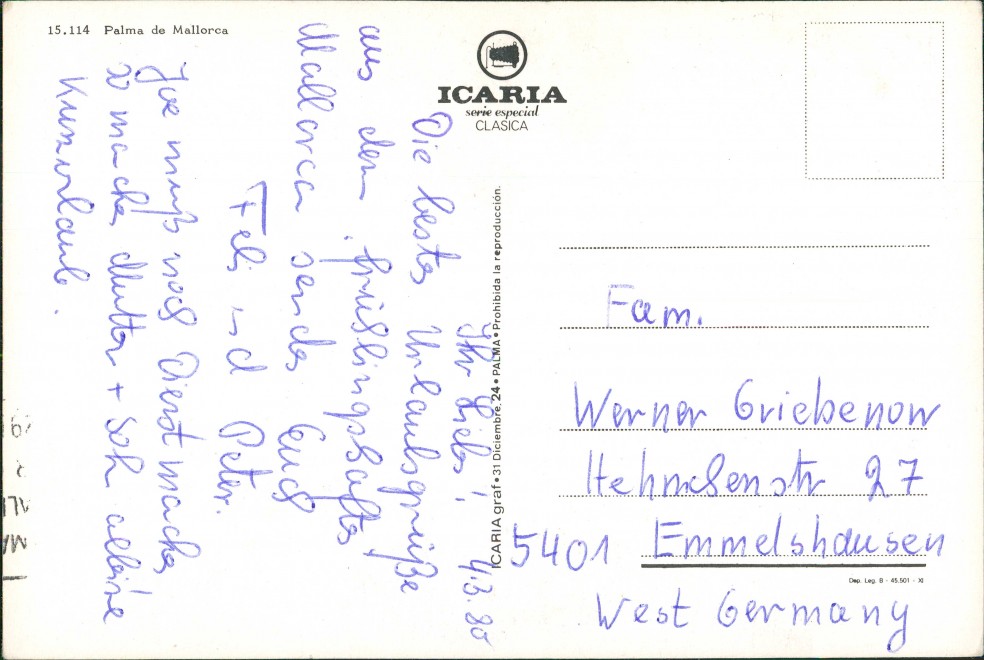 15.114 Palma de Mallorca
ICARIA
serie especial
CLASICA
Ihr Lieben! 4.3.80
Die besten Urlaubsgrüße
aus dem frühlingshaften
Mallorca senden Euch
Feli und Peter.
muß noch Dienst machen
so machen Mutter + Sohn alleine
Kurzurlaub.
ICARIA graf • 31 Diciembre, 24 • PALMA • Prohibida la reproducción.
Fam.
Werner Griebenow
27
5401 Emmelshausen
West Germany
Dep. Leg. B - 45.501 - XI